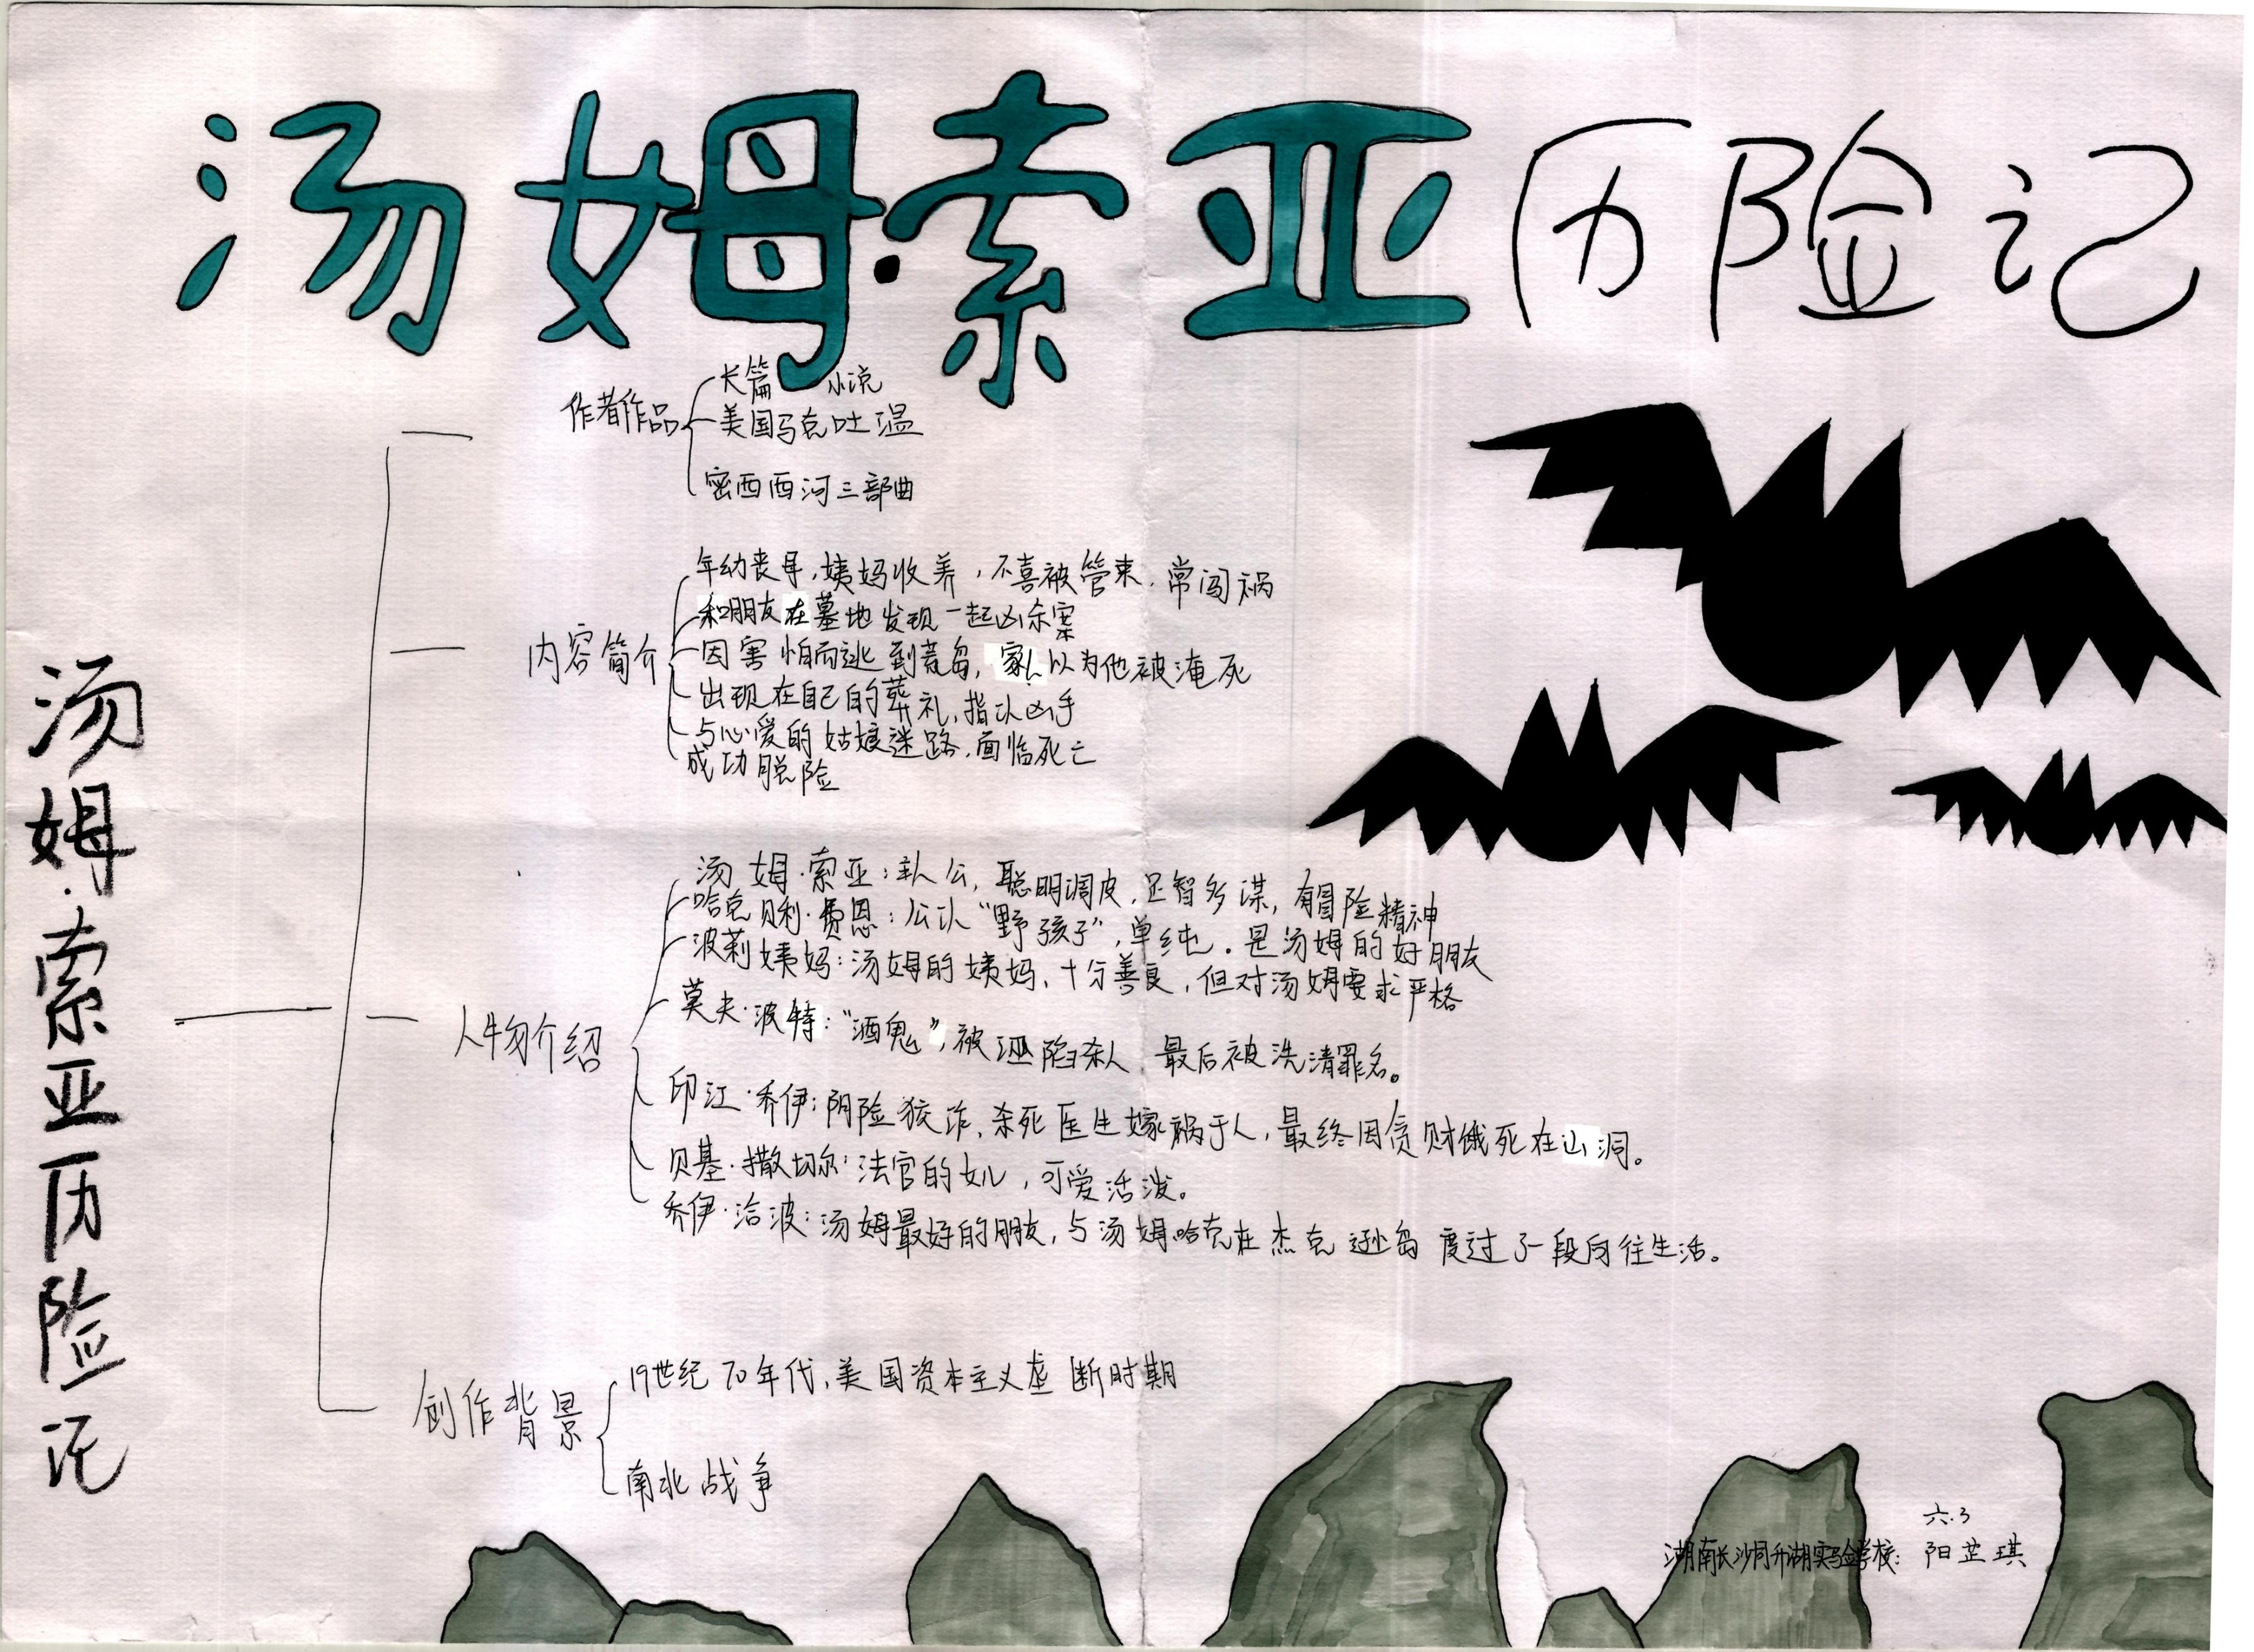 汤姆·索亚历险记
作者作品
长篇 小说
美国马克吐温
密西西河三部曲
内容简介
年幼丧母,姨妈收养,不喜被管束.常闯祸
和朋友在墓地发现一起凶杀案
因害怕而逃到荒岛,家人以为他被淹死
出现在自己的葬礼,指认凶手
与心爱的姑娘迷路.面临死亡
成功脱险
汤姆·索亚历险记
人物介绍
汤姆·索亚:主人公,聪明调皮,足智多谋,有冒险精神
哈克贝利·费恩:公认“野孩子”,单纯.是汤姆的好朋友
波莉姨妈:汤姆的姨妈、十分善良,但对汤姆要求严格
莫夫·波特:“酒鬼”,被诬陷杀人.最后被洗清罪名。
印江·乔伊:阴险狡诈、杀死医生嫁祸于人,最终因贪财饿死在山洞。
贝基·撒切尔:法官的女儿,可爱活泼。
乔伊·洽波:汤姆最好的朋友,与汤姆.哈克在杰克逊岛度过了一段向往生活。
创作背景
19世纪70年代,美国资本主义垄断时期
南北战争
六.3
湖南长沙同升湖实验学校:阳芷琪